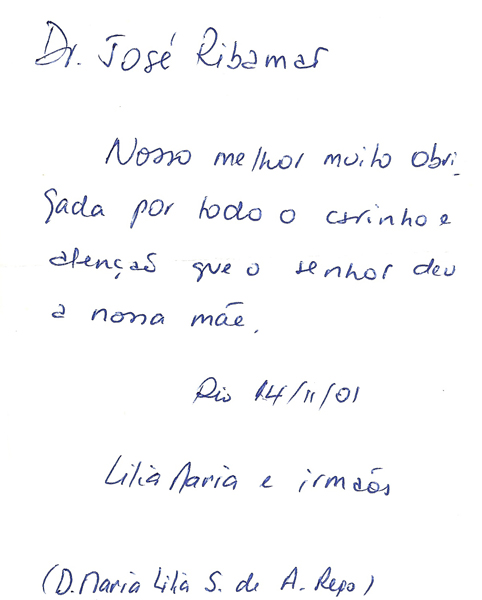 Dr. José Ribamar
Nosso melhor muito obri-
gada por todo o carinho e
atenção que o senhor deu
a nossa mãe.
Rio 14/11/01
Lilia Maria e irmãos
(D. Maria Lilia S. de A. Rego)